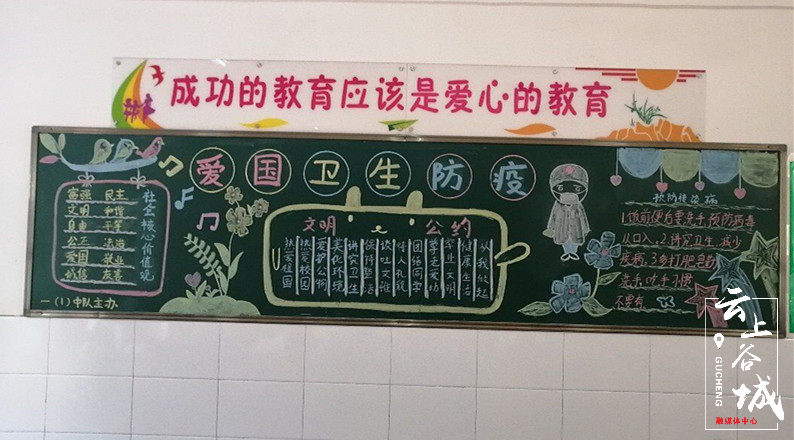 成功的教育应该是爱心的教育
爱国卫生防疫
社会核心价值观
富强 民主
文明 和谐
自由 平等
公正 法治
爱国 敬业
诚信 友善
一(1)中队主办
文明 公约
从我做起
健康生活
举止文明
孝老爱幼
团结同学
待人礼貌
谈吐文雅
保持整洁
讲究卫生
美化环境
爱护公物
热爱校园
热爱祖国
预防传染病
1.饭前便后要洗手,预防病毒
从口入,2.讲究卫生,减少
疾病,3.
洗手,吃手
不要有
云上谷城
GUCHENG
融媒体中心